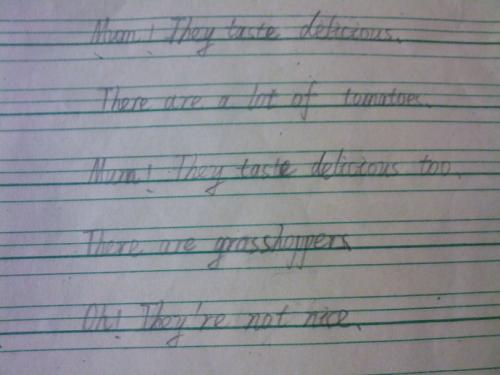 Mum! They taste delicious.
There are a lot of tomatoes.
Mum! They taste delicious too.
There are grasshoppers
Oh! They're not nice.